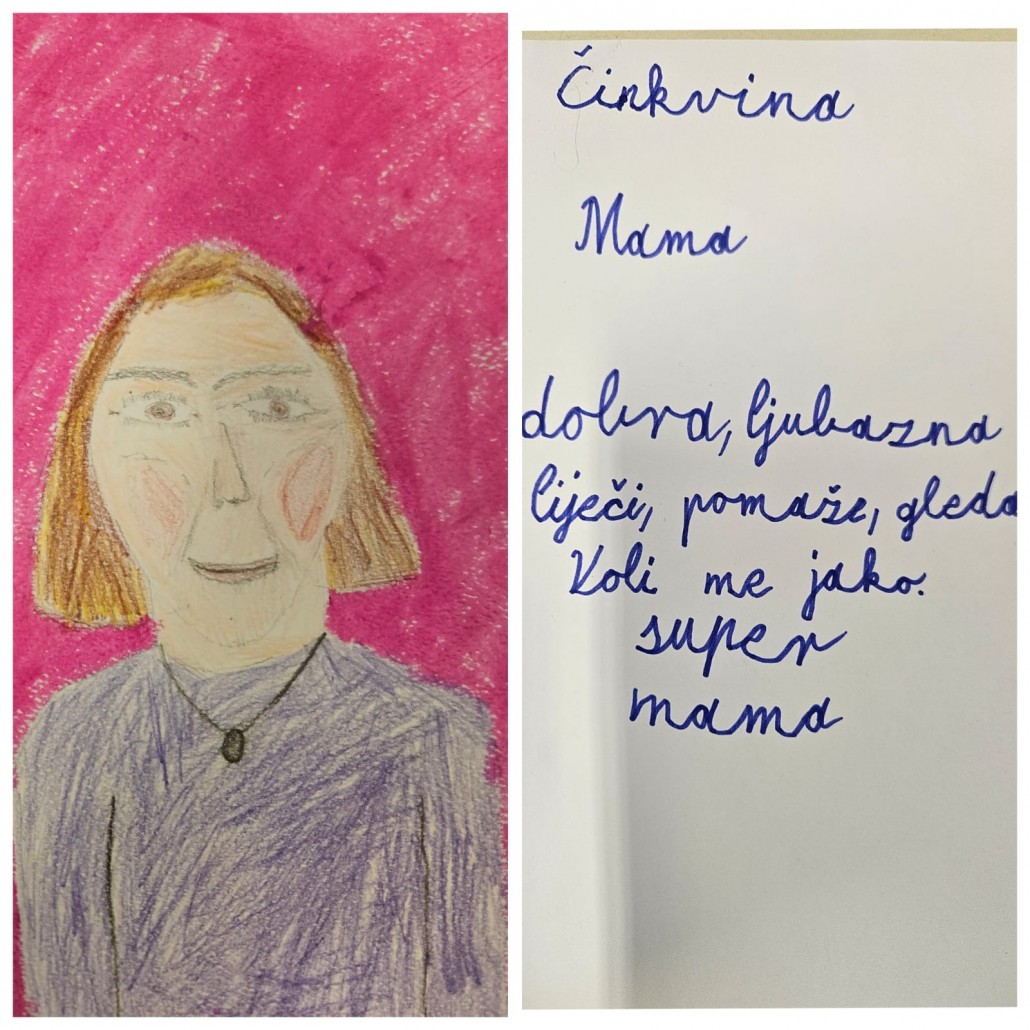 Činkvina
Mama
dobra, ljubazna
liječi, pomaže, gleda
Voli me jako.
super
mama